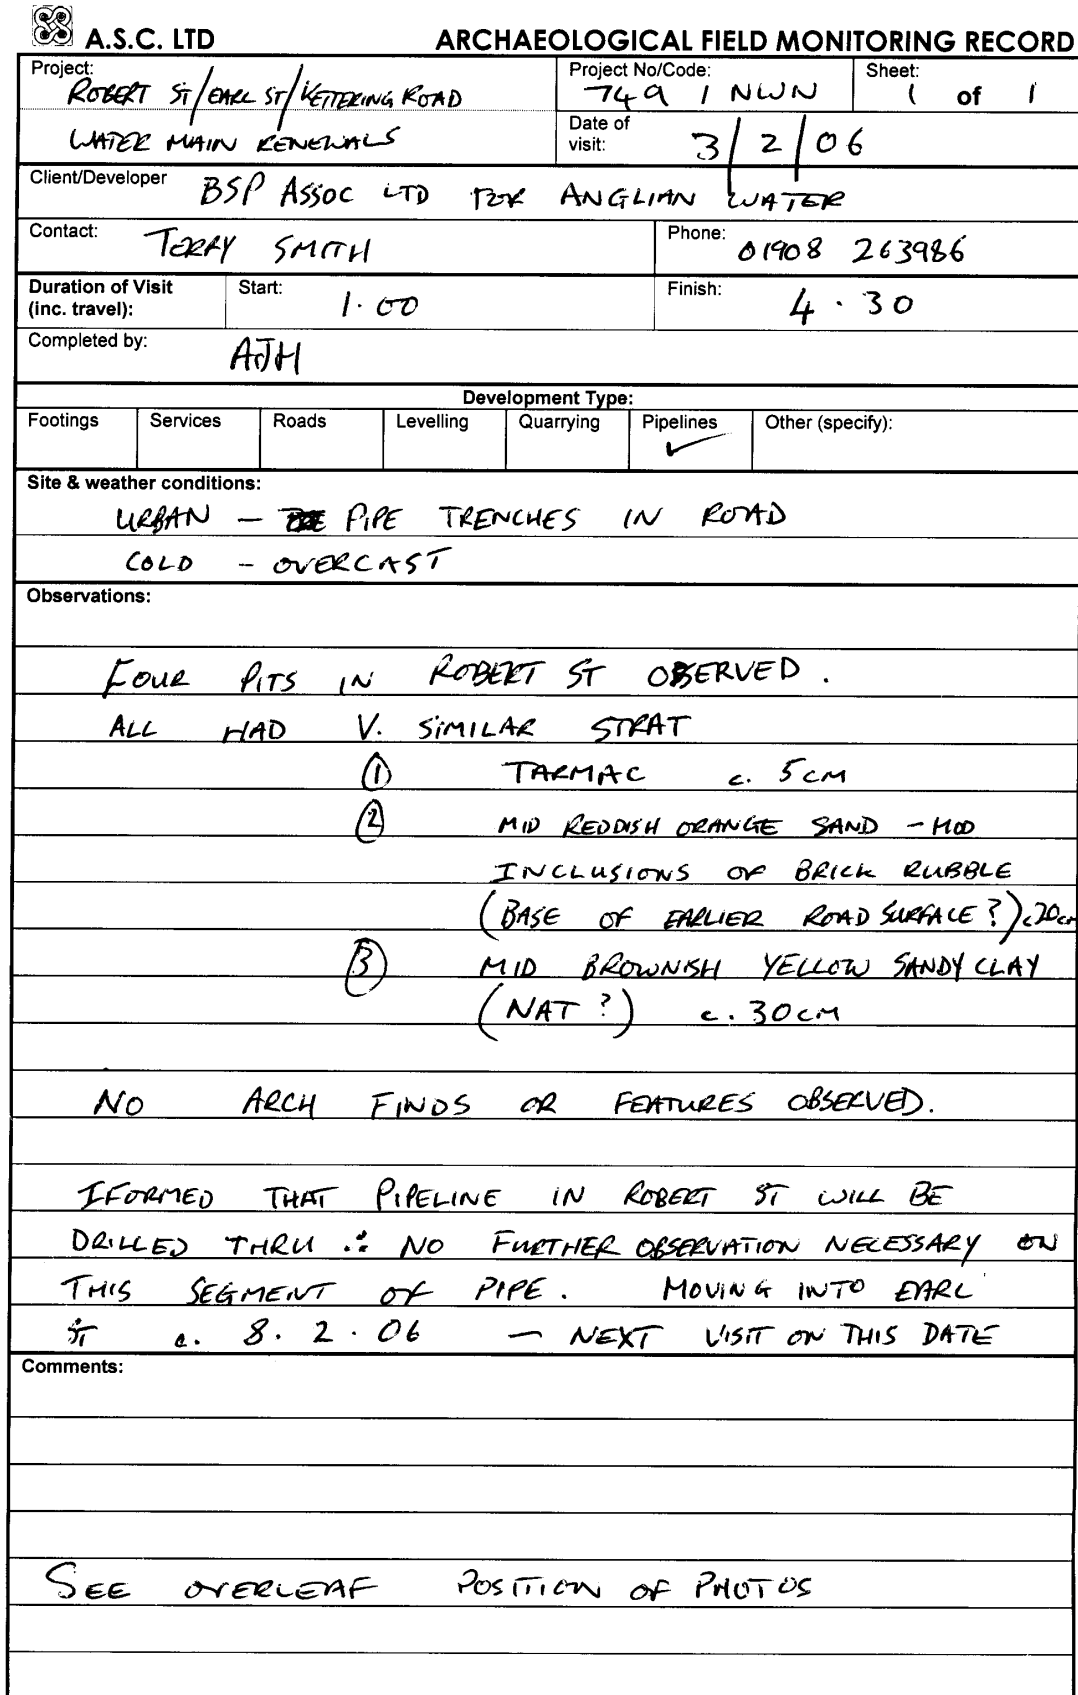 A.S.C. LTD ARCHAEOLOGICAL FIELD MONITORING RECORD
Project: ROBERT ST/EARL ST/KETTERING ROAD
WATER MAIN RENEWALS
Project No/Code: 749 / NWN
Sheet: 1 of 1
Date of visit: 3/2/06
Client/Developer BSP ASSOC LTD FOR ANGLIAN WATER
Contact: TERRY SMITH
Phone: 01908 263986
Duration of Visit (inc. travel):
Start: 1.00
Finish: 4.30
Completed by: AJH
Development Type:
Footings Services Roads Levelling Quarrying Pipelines ✓ Other (specify):
Site & weather conditions:
URBAN – PIPE TRENCHES IN ROAD
COLD – OVERCAST
Observations:
FOUR PITS IN ROBERT ST OBSERVED.
ALL HAD V. SIMILAR STRAT
① TARMAC c. 5cm
② MID REDDISH ORANGE SAND – MOD
INCLUSIONS OF BRICK RUBBLE
(BASE OF EARLIER ROAD SURFACE?) c20cm
③ MID BROWNISH YELLOW SANDY CLAY
(NAT?) c. 30cm
NO ARCH FINDS OR FEATURES OBSERVED.
IFORMED THAT PIPELINE IN ROBERT ST WILL BE
DRILLED THRU ∴ NO FURTHER OBSERVATION NECESSARY ON
THIS SEGMENT OF PIPE. MOVING INTO EARL
ST c. 8.2.06 – NEXT VISIT ON THIS DATE
Comments:
SEE OVERLEAF POSITION OF PHOTOS